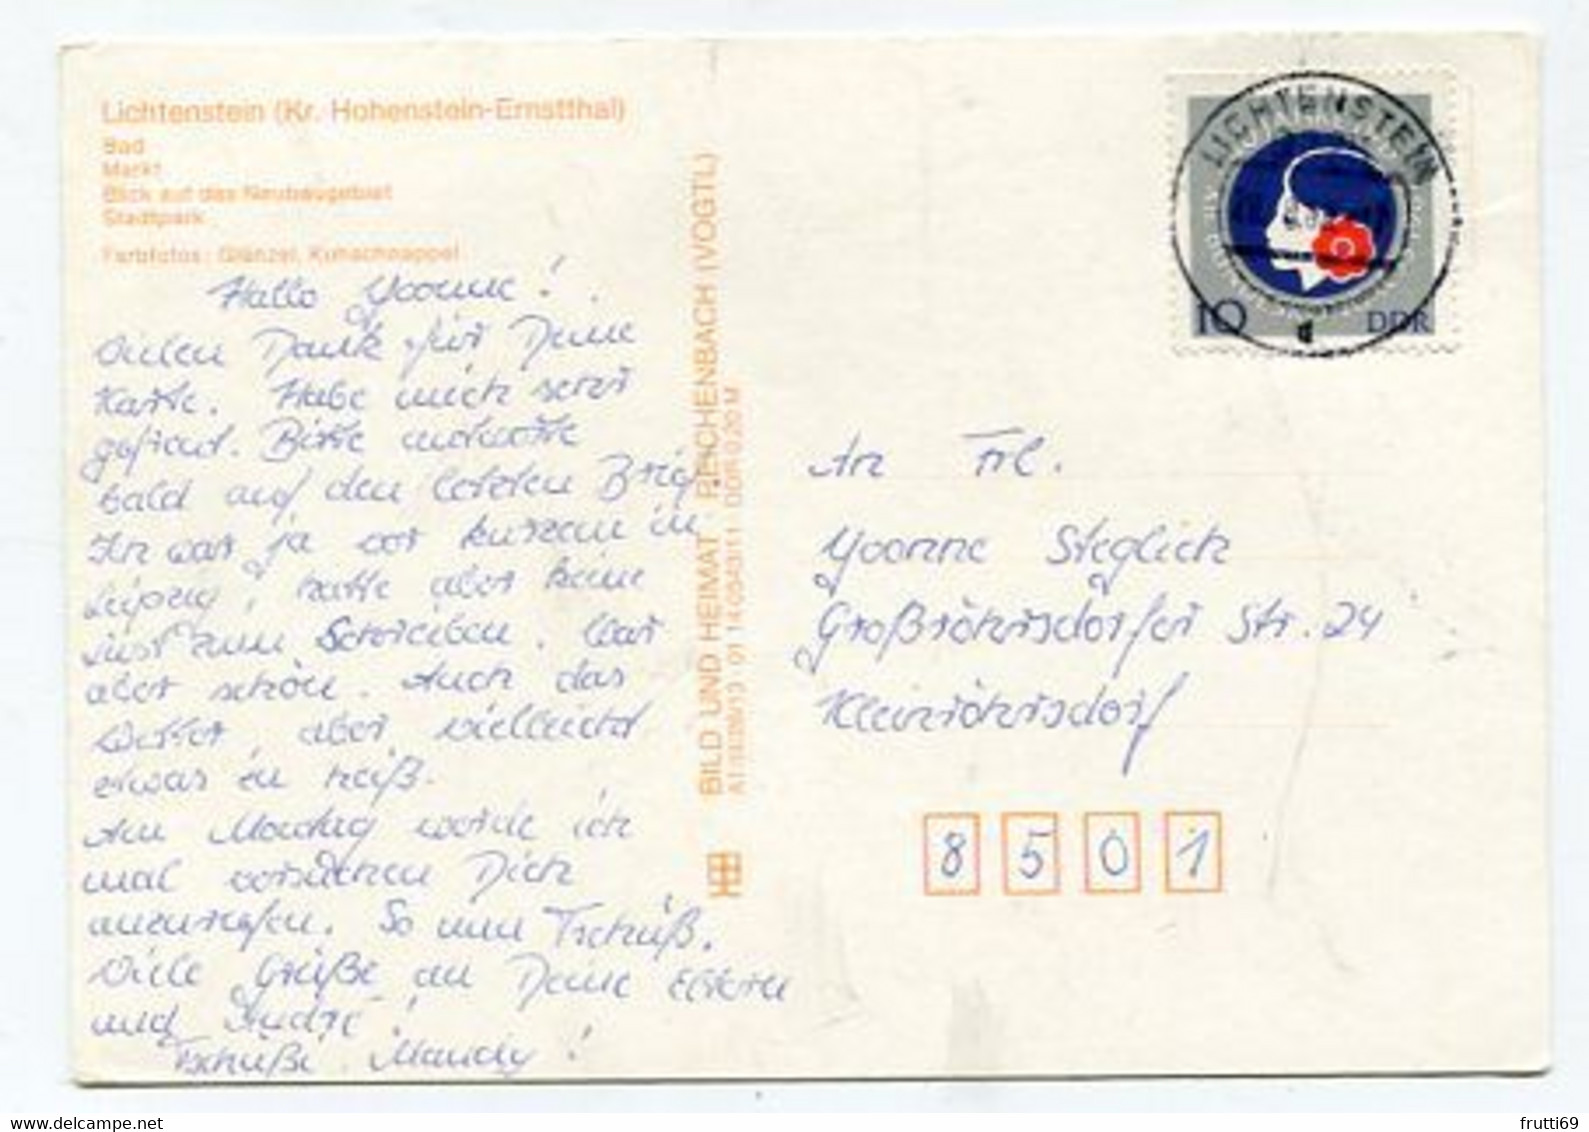 Lichtenstein (Kr. Hohenstein-Ernstthal)
Bad
Markt
Blick auf das Neubaugebiet
Stadtpark
Farbfotos: Glänzel, Kuhschnappel
Hallo Yvonne!
vielen Dank für Deine
Karte. Habe mich sehr
gefreut. Bitte antworte
bald auf den letzten Brief.
Ihr war ja vor kurzem in
Leipzig, hatte aber keine
Lust zum Schreiben. War
aber schön. Auch das
Wetter, aber vielleicht
etwas zu heiß.
Am Montag werde ich
mal versuchen Dich
anzurufen. So nun Tschüß.
Viele Grüße an Deine Eltern
und André!
Tschüßi Mandy!
BILD UND HEIMAT REICHENBACH (VOGTL)
DDR 0,20 M
LICHTENSTEIN
10
DDR
An Frl.
Yvonne Steglich
Großröhrsdorfer Str. 24
Kleinröhrsdorf
8 5 0 1
frutti69